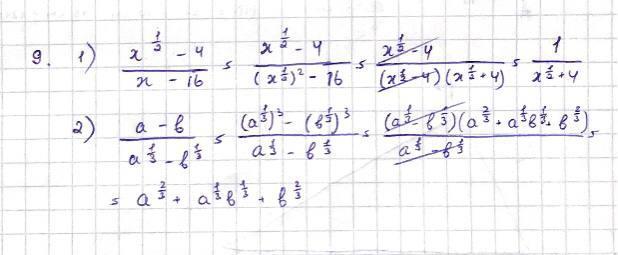 9. 1) (x^(1/2) - 4)/(x - 16) = (x^(1/2) - 4)/((x^(1/2))^2 - 16) = (x^(1/2) - 4)/((x^(1/2) - 4)(x^(1/2) + 4)) = 1/(x^(1/2) + 4)
2) (a - b)/(a^(1/3) - b^(1/3)) = ((a^(1/3))^3 - (b^(1/3))^3)/(a^(1/3) - b^(1/3)) = ((a^(1/3) - b^(1/3))(a^(2/3) + a^(1/3)b^(1/3) + b^(2/3)))/(a^(1/3) - b^(1/3)) =
= a^(2/3) + a^(1/3)b^(1/3) + b^(2/3)